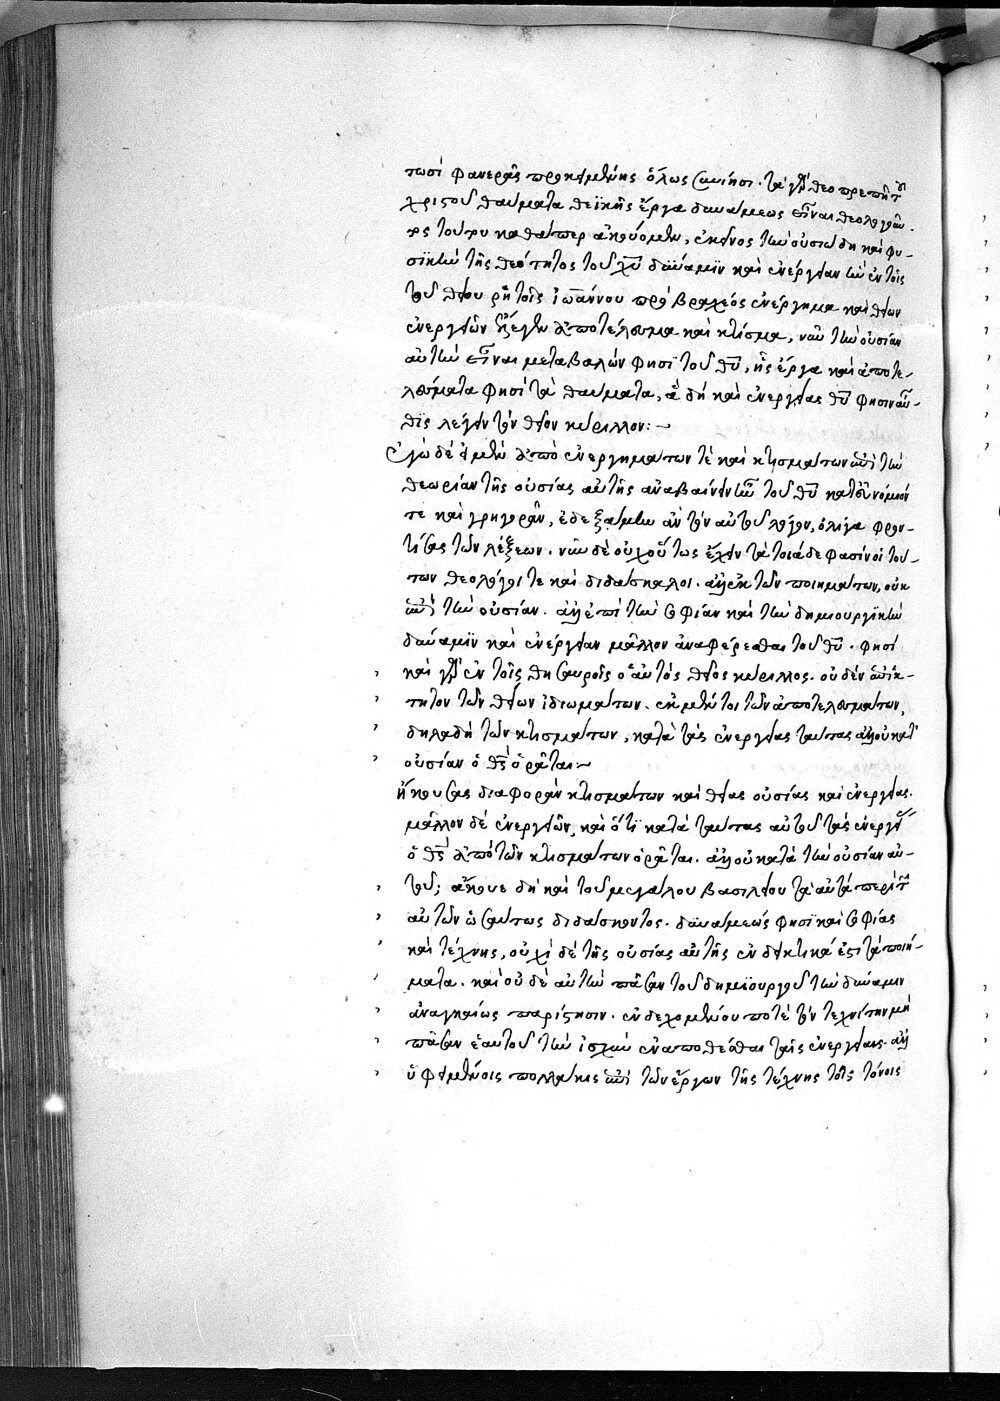 τωσὶ φανερᾶς προκειμένης ὅλως συνίησι. τὰ γὰρ θεοπρεπῆ τοῦ
χριστοῦ θαύματα θεϊκῆς ἔργα δυνάμεως εἶναι θεολογῶν.
τούτου καθάπερ ἀκούομεν, ἐκεῖνος τὴν οὐσιώδη καὶ φυ-
σικὴν τῆς θεότητος τοῦ χυ δύναμιν καὶ ἐνέργειαν ὡς ἐν τοῖς
τοῦ θείου ῥητοῖς ἰωάννου πρὸ βραχέος ἐνέργημα καὶ θείων
ἐνεργειῶν ἐξέχειν ἀποτέλεσμα καὶ κτίσμα, νῦν τὴν οὐσίαν
αὐτὴν εἶναι μεταβαλών φησι τοῦ θυ, ἧς ἔργα καὶ ἀποτε-
λέσματα φησὶ τὰ θαύματα, ἃ δὴ καὶ ἐνεργείας θυ φησιν αὖ-
θις λέγειν τὸν θεῖον κύριλλον:~
Ἐγὼ δὲ εἰ μὲν ἀπὸ ἐνεργημάτων τὲ καὶ κτισμάτων ἐπὶ τὴν
θεωρίαν τῆς οὐσίας αὐτῆς ἀναβαίνειν τοῦ θυ κατ' εὐνόμιόν
τε καὶ γρηγορᾶν, ἐδεξάμην ἂν τὸν αὐτοῦ λόγον, ὀλίγα φρον-
τίσας τῶν λέξεων. νῦν δὲ οὐχ οὕτως ἔχειν τὰ τοιάδε φασὶν οἱ τού-
των θεολόγοι τε καὶ διδάσκαλοι. ἀλλ' ἐκ τῶν ποιημάτων, οὐκ
ἐπὶ τὴν οὐσίαν. ἀλλ' ἐπὶ τὴν σοφίαν καὶ τὴν δημιουργικὴν
δύναμιν καὶ ἐνέργειαν μᾶλλον ἀναφέρεσθαι τοῦ θυ. φησὶ
καὶ γὰρ ἐν τοῖς θησαυροῖς ὁ αὐτὸς θεῖος κύριλλος. οὐδὲν ἐπίκ-
τητον τῶν θείων ἰδιωμάτων. ἐκ μέντοι τῶν ἀποτελεσμάτων,
δηλαδὴ τῶν κτισμάτων, κατὰ τὰς ἐνεργείας ταύτας ἀλλ' οὐ κατ'
οὐσίαν ὁ θς ὁρᾶται:~
ἤκουσας διαφορὰν κτισμάτων καὶ θείας οὐσίας καὶ ἐνεργείας.
μᾶλλον δὲ ἐνεργειῶν, καὶ ὅτι κατὰ ταύτας αὐτοῦ τὰς ἐνεργείας
ὁ θς ἀπὸ τῶν κτισμάτων ὁρᾶται. ἀλλ' οὐ κατὰ τὴν οὐσίαν αὐ-
τοῦ; ἄκουε δὴ καὶ τοῦ μεγάλου βασιλείου τὰ αὐτὰ περὶ τῶν
αὐτῶν ὡσαύτως διδάσκοντος. δυνάμεώς φησι καὶ σοφίας
καὶ τέχνης, οὐχὶ δὲ τῆς οὐσίας αὐτῆς ἐνδεικτικά ἐστι τὰ ποιή-
ματα. καὶ οὐδὲ αὐτὴν πᾶσαν τοῦ δημιουργοῦ τὴν δύναμιν
ἀναγκαίως παρίστησιν. ἐνδεχομένου ποτὲ τὸν τεχνίτην μὴ
πᾶσαν ἑαυτοῦ τὴν ἰσχὺν ἐναποθέσθαι ταῖς ἐνεργείαις. ἀλλ'
ὑφειμένοις πολλάκις ἐπὶ τῶν ἔργων τῆς τέχνης τοῖς τόνοις